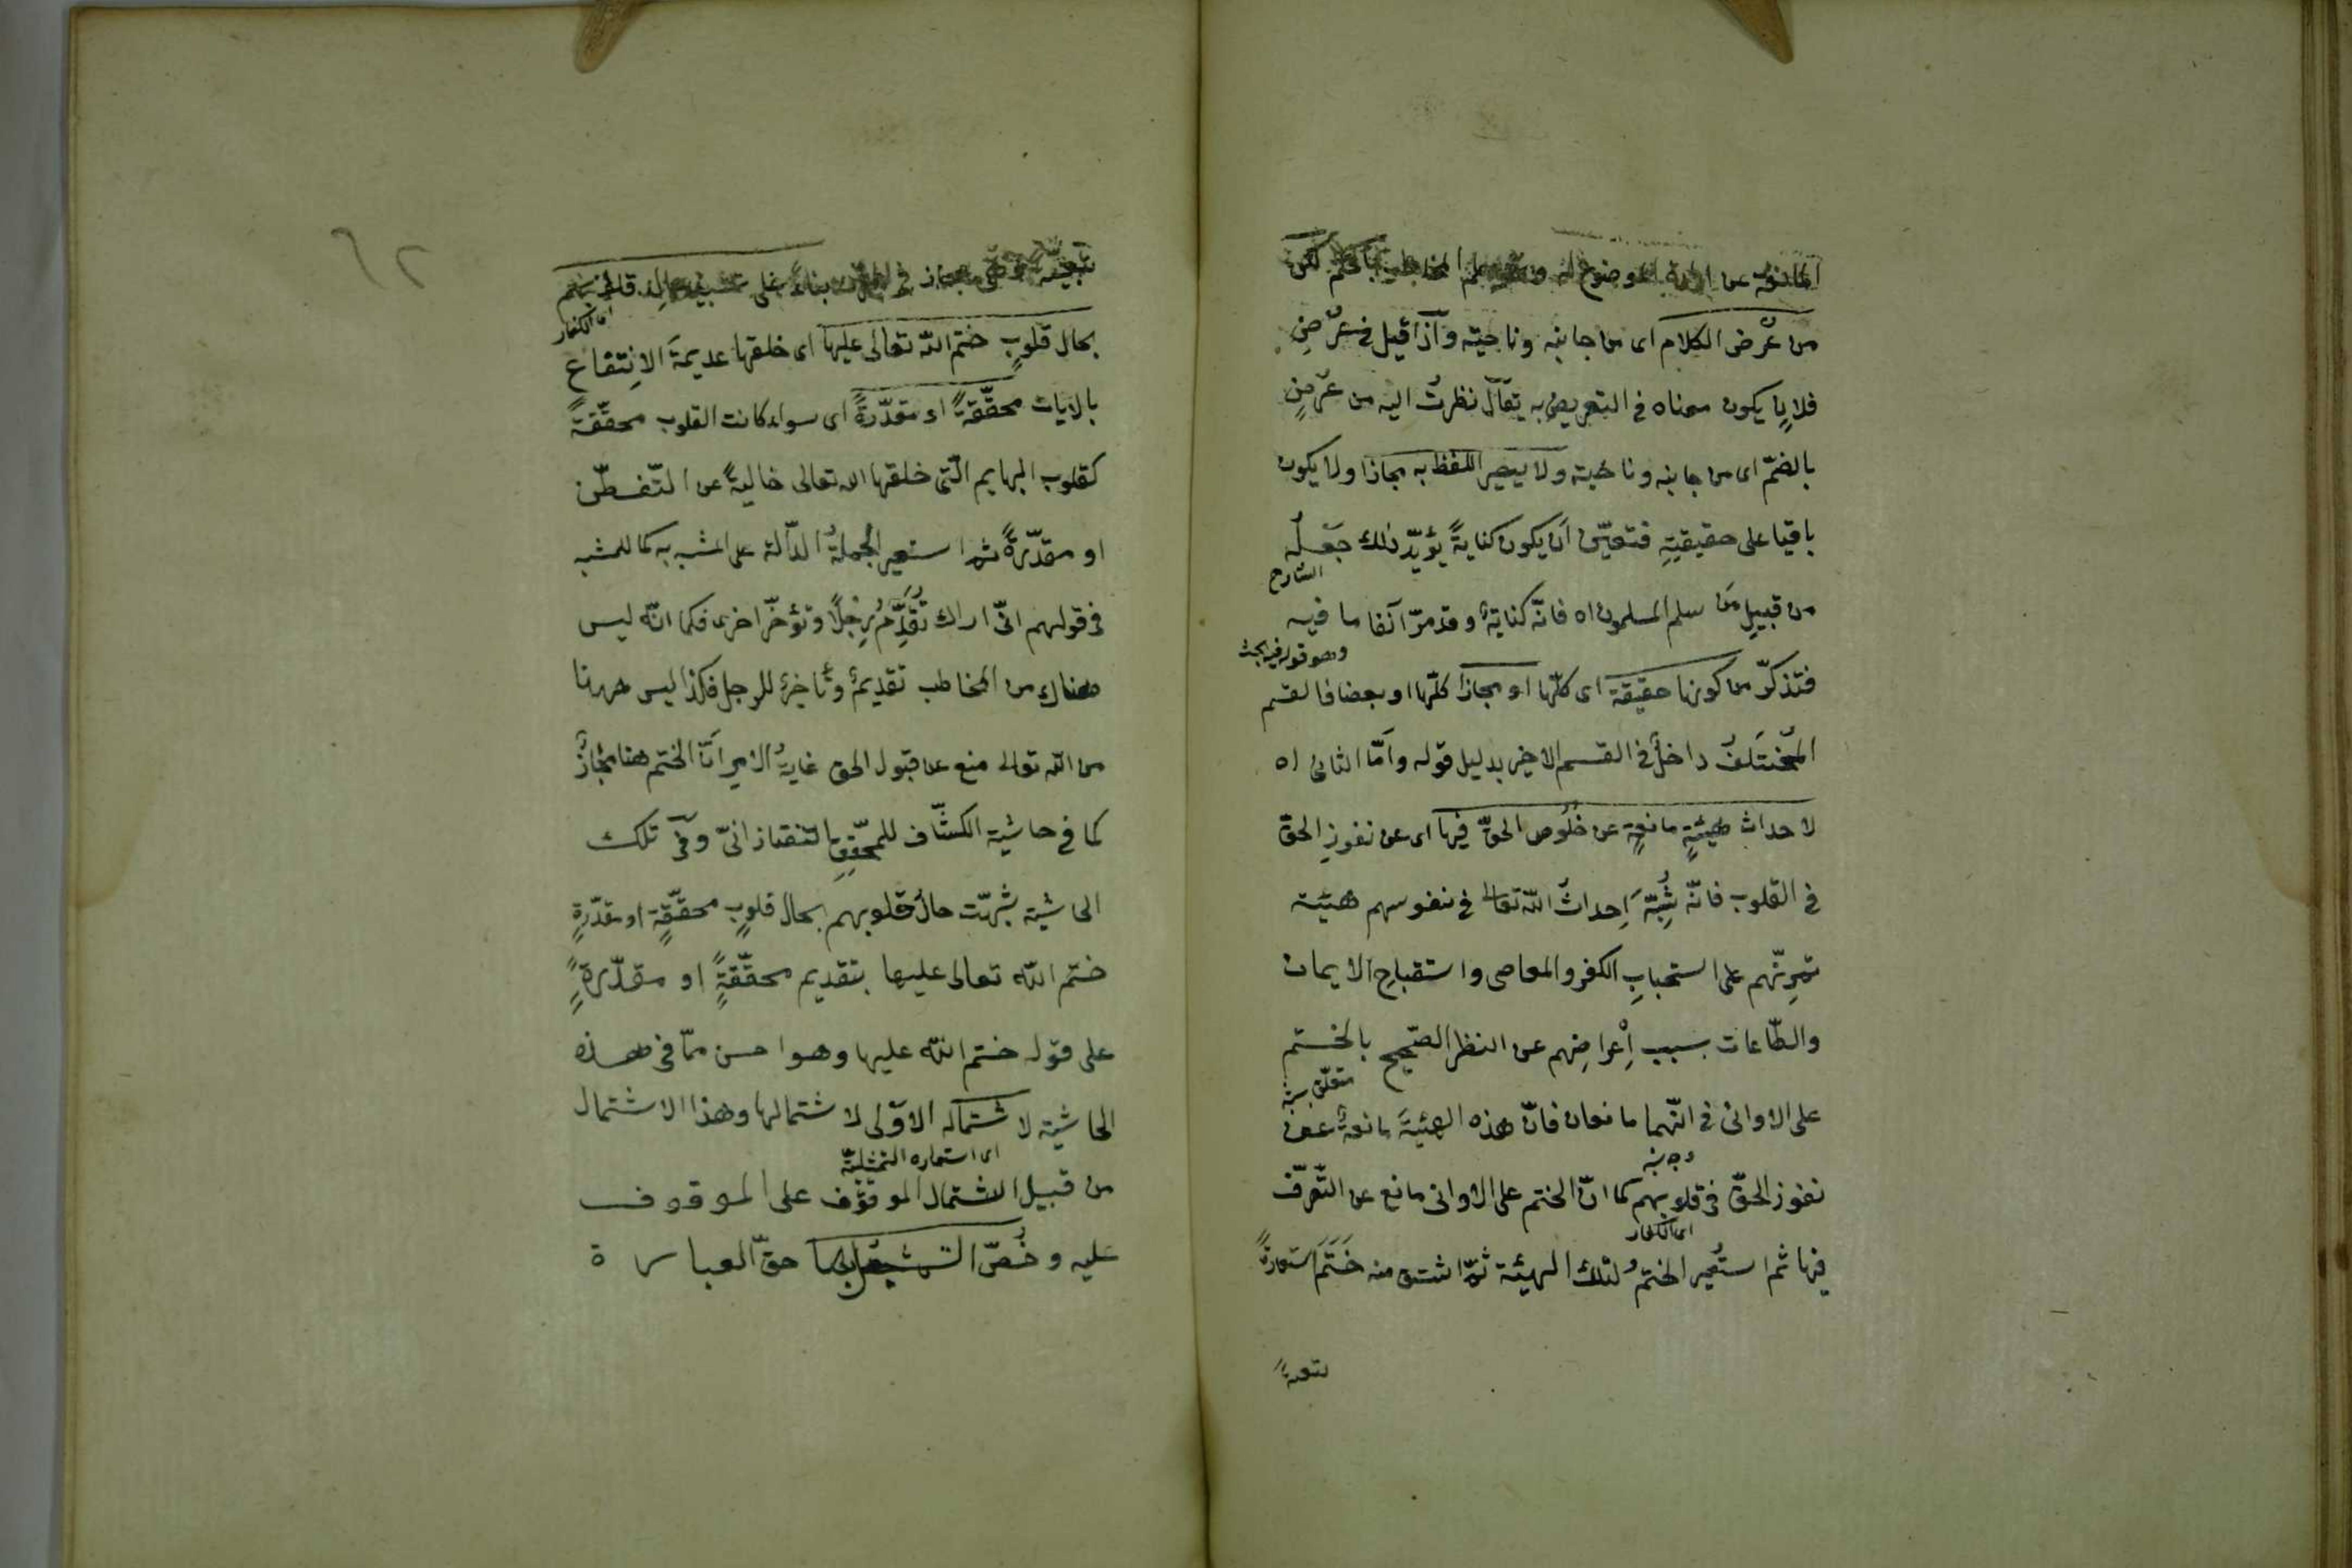 المانعة عن ارادة الموضوع له لكن
من عُرْض الكلام اى من جانبه وناحيته واذا قيل فى عُرْضٍ
فلان يكون معناه فى التعريض به يقال نظرت اليه من عُرْضٍ
بالضمّ اى من جانبه وناحية ولا يصير اللفظ به مجازا ولا يكون
باقيا على حقيقيته فتعيّن أن يكون كنايةً يؤيّد ذلك جَعْلُه
الشارح
من قبيلِ مَن سلم المسلمون اه فانّه كناية وقد مرّ آنفا ما فيه
وهو قوله فيه بحث
فتذكّر من كونها حقيقة اى كلّها او مجازا كلّها او بعضا فالقسم
المُخْتَلَفُ داخلٌ فى القسم الاخير بدليل قوله وأمّا الثانى اه
لاحداث هيئةٍ مانعةٍ عن خُلُوص الحقّ فيها اى عن نفوذِ الحقّ
فى القلوب فانّه شُبِّهَ إحداثُ اللّه تعالى فى نفوسهم هيئة
تمرّنهم على استحبابِ الكفر والمعاصى واستقباحِ الايمان
والطّاعات بسبب إعراضِهم عن النظر الصّحيح بالختم
متعلّق بشبه
على الاوانى فى انّهما مانعان فانّ هذه الهيئةَ مانعةٌ عن
وجه شبه
نفوذ الحقّ فى قلوبهم كما انّ الختم على الاوانى مانع عن التّصرّف
اى الكفار
فيها ثم استُعير الختمُ لتلك الهيئة ثمّ اشتق منه خَتَمَ استعارةً
تبعيةً
تبعيّةً مجاز فى بناءً على تشبيه حالِ قلوبهم
اى الكفار
بحال قلوبٍ ختم اللّه تعالى عليها اى خلقها عديمةَ الانتفاعِ
بالايات محقّقةً او مقدّرةً اى سواء كانت القلوب محقّقةً
كقلوب البهايم الّتى خلقها الله تعالى خاليةً عن التّفطّن
او مقدّرةً ثم استعير الجملةُ الدّالة على المشبه به كما للمشبه
فى قولهم انّى اراك تُقَدِّمُ رِجْلاً وتؤخّر اخرى فكما انّه ليس
هناك من المخاطب تقديمٌ وتأخيرٌ للرجل فكذا ليس ههنا
من اللّه تعالى منع عن قبول الحق غايةُ الامر أنّ الختم هنا مجازٌ
كما فى حاشية الكشّاف للمحقّقِ التفتازانىّ وفى تلك
الحاشية شُبّهت حالُ قلوبهم بحال قلوبٍ محقّقةٍ او مقدّرةٍ
ختم اللّه تعالى عليها بتقديم محقّقةٍ او مقدّرةٍ
على قوله ختم اللّه عليها وهو احسن ممّا فى هذه
الحاشية لاشتماله الاوّلى لاشتمالها وهذا الاشتمال
اى استعارة التمثيليّة
من قبيل اشتمال الموقوف على الموقوف
عليه وخُصّ حقّ العبارة